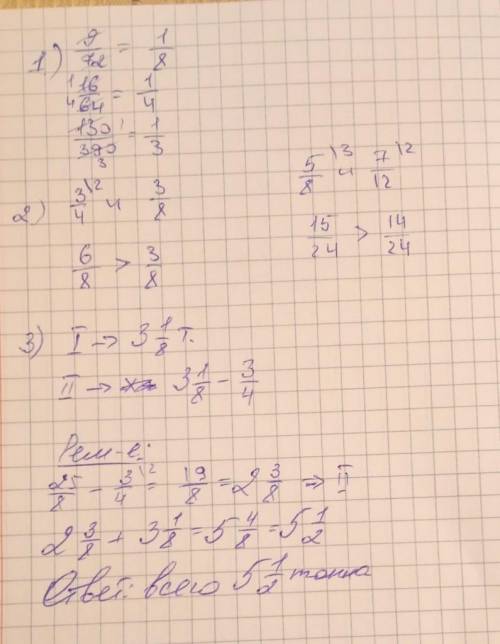 1) 9/72 = 1/8
16/64 = 1/4
130/390 = 1/3
2) 3/4 и 3/8
6/8 > 3/8
5/8 и 7/12
15/24 > 14/24
3) I → 3 1/8 т.
II → 3 1/8 - 3/4
Реш-е:
25/8 - 3/4 = 19/8 = 2 3/8 ⇒ II
2 3/8 + 3 1/8 = 5 4/8 = 5 1/2
Ответ: всего 5 1/2 тонна